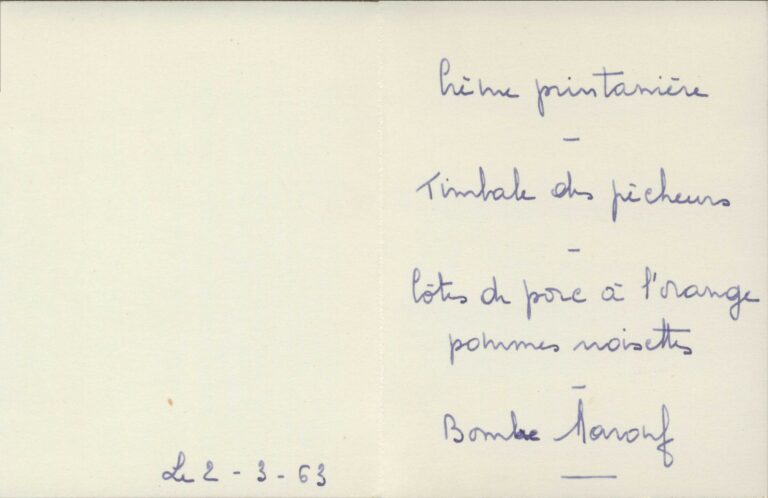 Le 2 - 3 - 63
Crème printanière
-
Timbale des pêcheurs
-
Côtes de porc à l'orange
pommes noisettes
-
Bombe Marouf